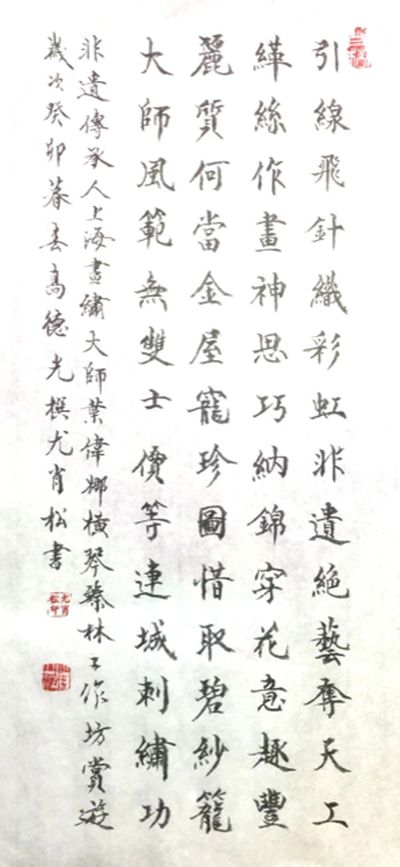 引線飛針織彩虹非遺絕藝奪天工
緙絲作畫神思巧納錦穿花意趣豐
麗質何當金屋寵珍圖惜取碧紗籠
大師風範無雙士價等連城刺繡功
非遺傳承人上海畫繡大師葉偉娜橫琴臻林工作坊賞遊
歲次癸卯暮春高德光撰尤肖松書
尤肖松印